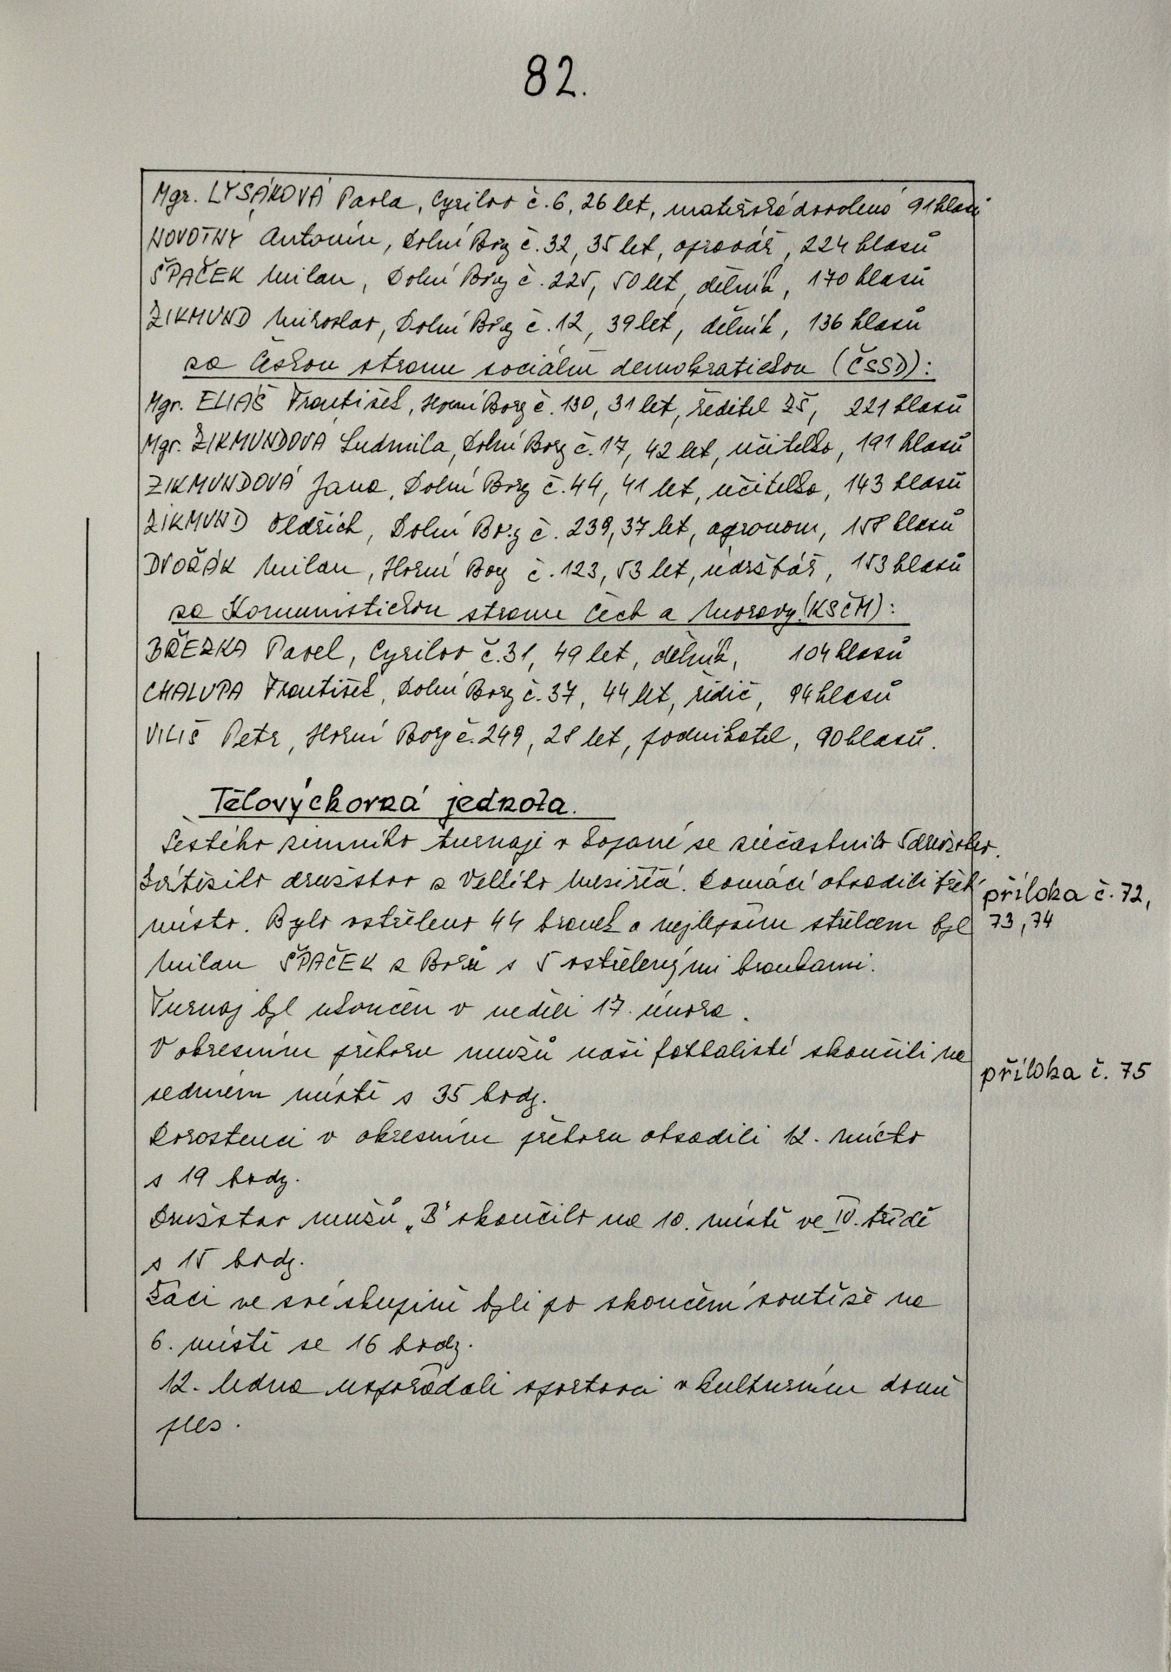 82.
Mgr. LYSÁKOVÁ Pavla, Cyrilov č.6, 26 let, mateřská dovolená 91 hlasů
NOVOTNÝ Antonín, Dolní Bory č.32, 35 let, opravář, 224 hlasů
ŠPAČEK Milan, Dolní Bory č.225, 50 let, dělník, 170 hlasů
ZIKMUND Miroslav, Dolní Bory č.12, 39 let, dělník, 136 hlasů
za Českou stranu sociálně demokratickou (ČSSD):
Mgr. ELIÁŠ František, Horní Bory č.130, 31 let, ředitel ZŠ, 221 hlasů
Mgr. ZIKMUNDOVÁ Ludmila, Dolní Bory č.17, 42 let, učitelka, 191 hlasů
ZIKMUNDOVÁ Jana, Dolní Bory č.44, 41 let, učitelka, 143 hlasů
ZIKMUND Oldřich, Dolní Bory č.239, 37 let, agronom, 158 hlasů
DVOŘÁK Milan, Horní Bory č.123, 53 let, údržbář, 153 hlasů
za Komunistickou stranu Čech a Moravy (KSČM):
BŘEZKA Pavel, Cyrilov č.31, 49 let, dělník, 104 hlasů
CHALUPA František, Dolní Bory č.37, 44 let, řidič, 94 hlasů
VILIŠ Petr, Horní Bory č.249, 28 let, podnikatel, 90 hlasů.
Tělovýchovná jednota.
Šestého zimního turnaje v kopané se zúčastnilo 5 družstev.
Zvítězilo družstvo z Velkého Meziříčí. Domácí obsadili třetí
příloha č. 72,
místo. Bylo vstřeleno 44 branek a nejlepším střelcem byl
73, 74
Milan ŠPAČEK z Borů s 5 vstřelenými brankami.
Turnaj byl ukončen v neděli 17. února.
V okresním přeboru mužů naši fotbalisté skončili na
příloha č. 75
sedmém místě s 35 body.
Dorostenci v okresním přeboru obsadili 12. místo
s 19 body.
Družstvo mužů „B" skončilo na 10. místě ve IV. třídě
s 15 body.
Žáci ve své skupině byli po skončení soutěže na
6. místě se 16 body.
12. ledna uspořádali sportovci v kulturním domě
ples.